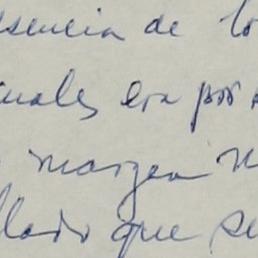 sencia de lo
uales era por
margen
lado que se